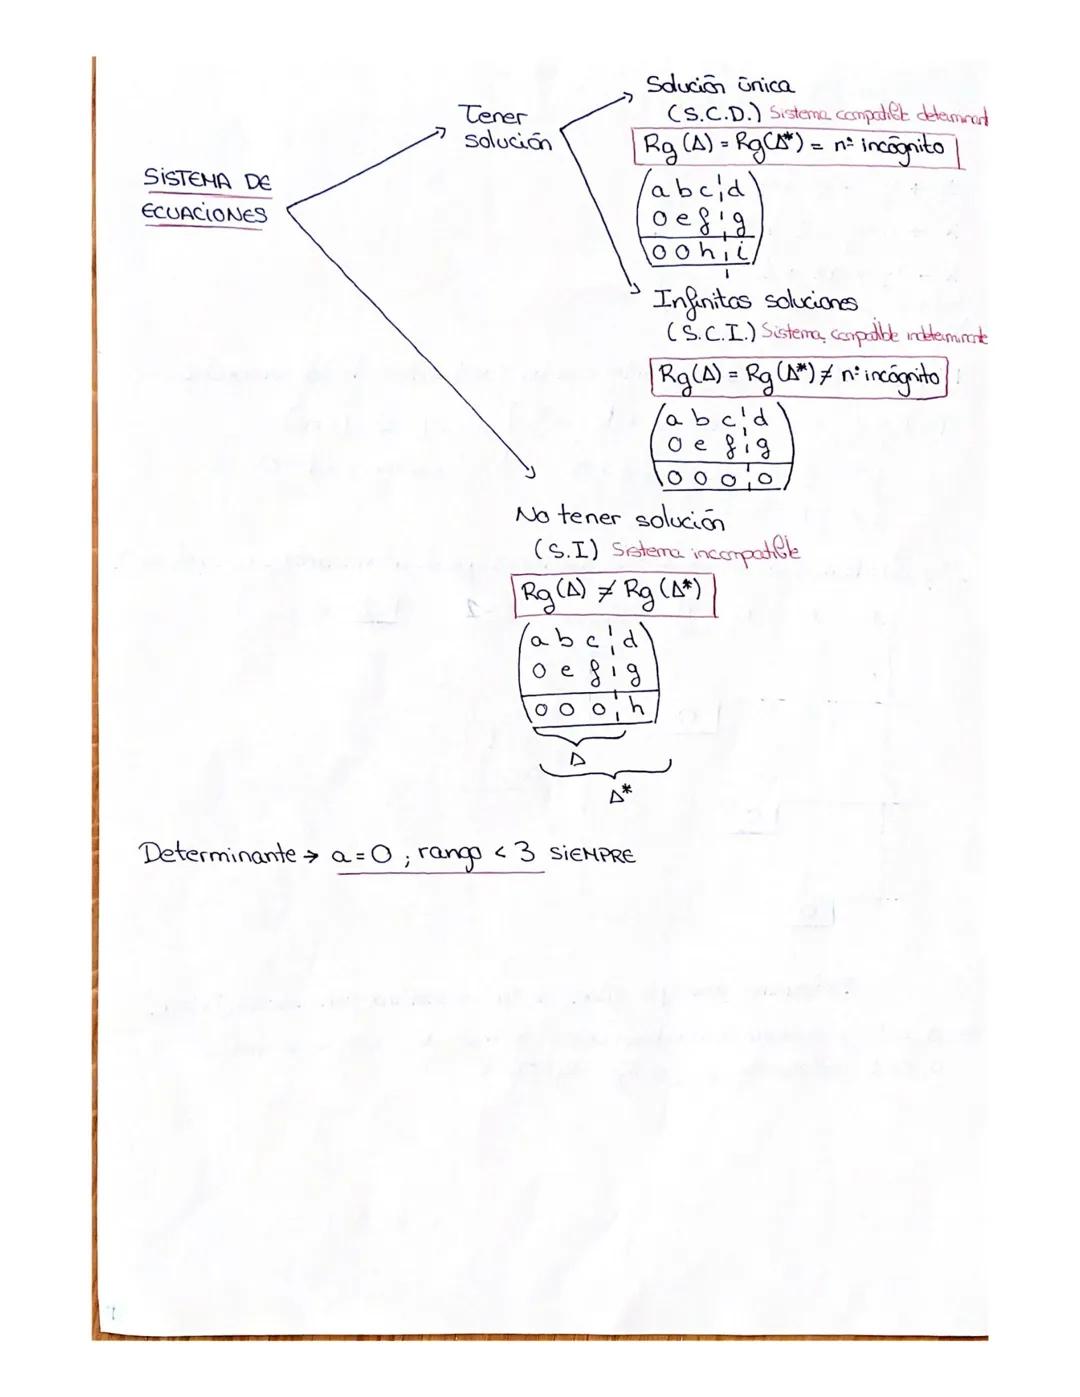 SISTEMA DE
ECUACIONES
Tener
solución
Solución única
(S.C.D.) Sistema compatible determinant
Rg (A) = Rg(A*) = nº incógnito
a b c ¦ d
0 e f ¦ g
0 0 h ¦ i
Infinitas soluciones
(S.C.I.) Sistema compatible indeterminante
Rg(A) = Rg(A*) ≠ nº incógnito
a b c ¦ d
0 e f ¦ g
0 0 0 ¦ 0
No tener solución
(S.I) Sistema incompatible
Rg(A) ≠ Rg(A*)
a b c ¦ d
0 e f ¦ g
0 0 0 ¦ h
A
A*
Determinante → a = 0 ; rango < 3 SIEMPRE